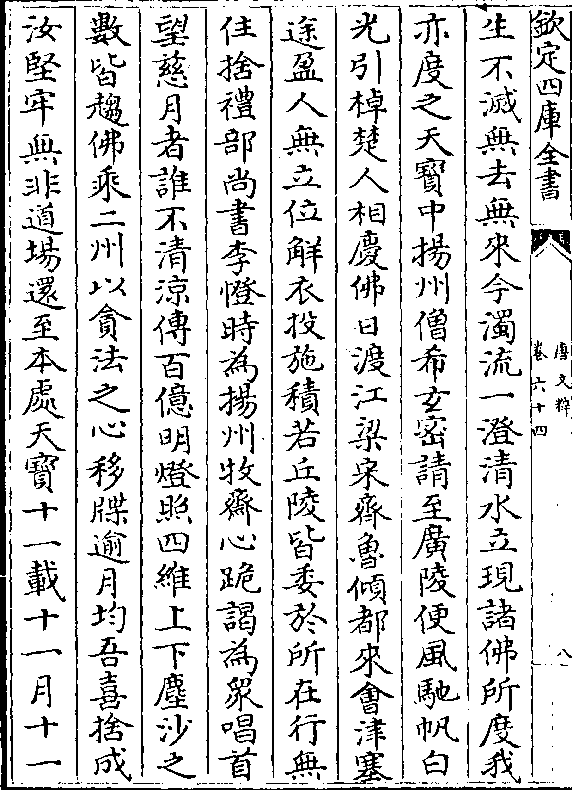 欽定四庫全書
唐文粹
卷六十四
八
生不滅無去無來今濁流一澄清水立現諸佛所度我
亦度之天寶中揚州僧希玄密請至廣陵便風馳帆白
光引棹楚人相慶佛日渡江梁宋齊魯傾都來會津塞
途盈人無立位解衣投施積若丘陵皆委於所在行無
住捨禮部尚書李憕時為揚州牧齋心跪謁為衆唱首
望慈月者誰不清涼傳百億明燈照四維上下塵沙之
數皆趨佛乘二州以貪法之心移牒逾月均吾喜捨成
汝堅牢無非道場還至本處天寶十一載十一月十一